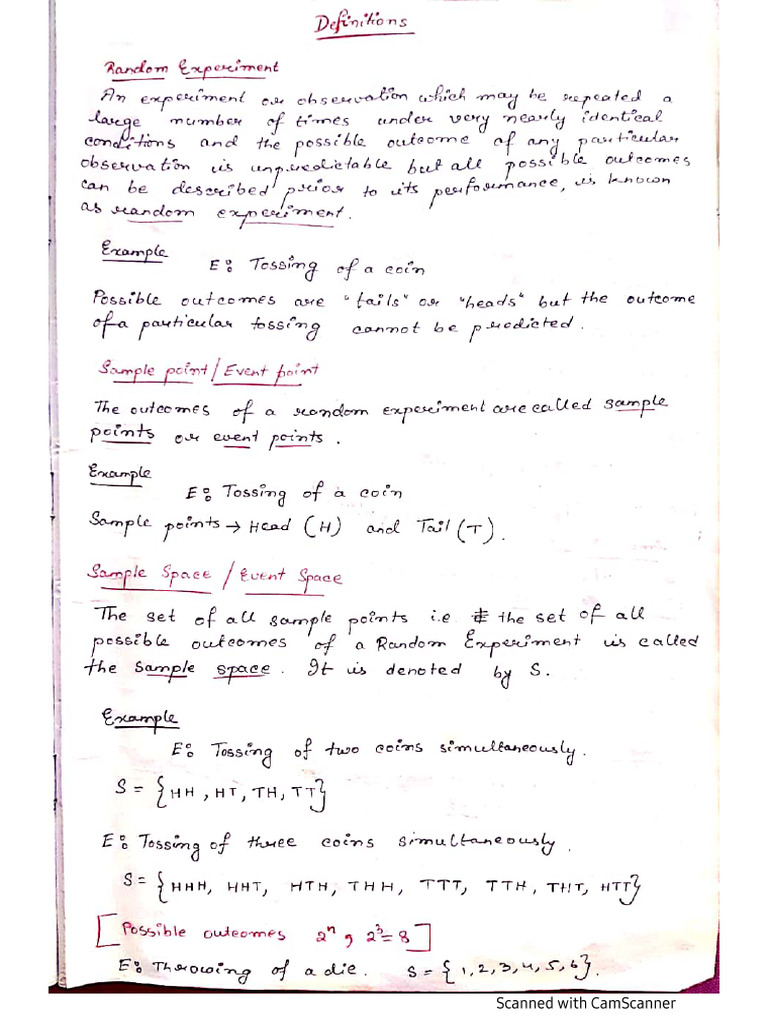 Definitions
Random Experiment
An experiment or observation which may be repeated a
large number of times under very nearly identical
conditions and the possible outcome of any particular
observation is unpredictable but all possible outcomes
can be described prior to its performance, is known
as random experiment.
Example
E: Tossing of a coin
Possible outcomes are "tails" or "heads" but the outcome
of a particular tossing cannot be predicted.
Sample point / Event point
The outcomes of a random experiment are called sample
points or event points.
Example
E: Tossing of a coin
Sample points → Head (H) and Tail (T).
Sample Space / Event Space
The set of all sample points i.e the set of all
possible outcomes of a Random Experiment is called
the sample space. It is denoted by S.
Example
E: Tossing of two coins simultaneously.
S = {HH, HT, TH, TT}
E: Tossing of three coins simultaneously.
S = {HHH, HHT, HTH, THH, TTT, TTH, THT, HTT}
[Possible outcomes 2ⁿ, 2³=8]
E: Throwing of a die. S = {1,2,3,4,5,6}.
Scanned with CamScanner